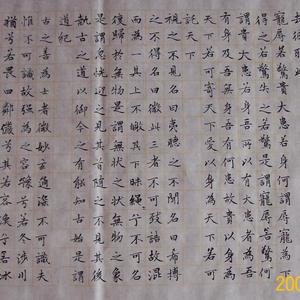 寵辱若驚貴大患若身何謂寵辱若驚寵為下
得之若驚失之若驚是謂寵辱若驚何謂
貴大患若身吾所以有大患者為吾
有身及吾無身吾有何患故貴以身為
天下若可寄天下愛以身為天下若可
託天下
視之不見名曰夷聽之不聞名曰希搏
之不得名曰微此三者不可致詰故混
而為一其上不皦其下不昧繩繩不可
復歸於無物是謂無狀之狀無物之象
是謂忽恍迎之不見其首隨之不見其後
執古之道以御今之有能知古始是謂
道紀
古之善為士者微妙玄通深不可識夫
惟不可識故強為之容豫兮若冬涉川
猶兮若畏四鄰儼兮其若客渙兮若冰
200